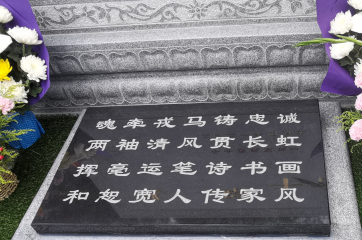 魂牵戎马铸忠诚
两袖清风贯长虹
挥毫运笔诗书画
和恕宽人传家风